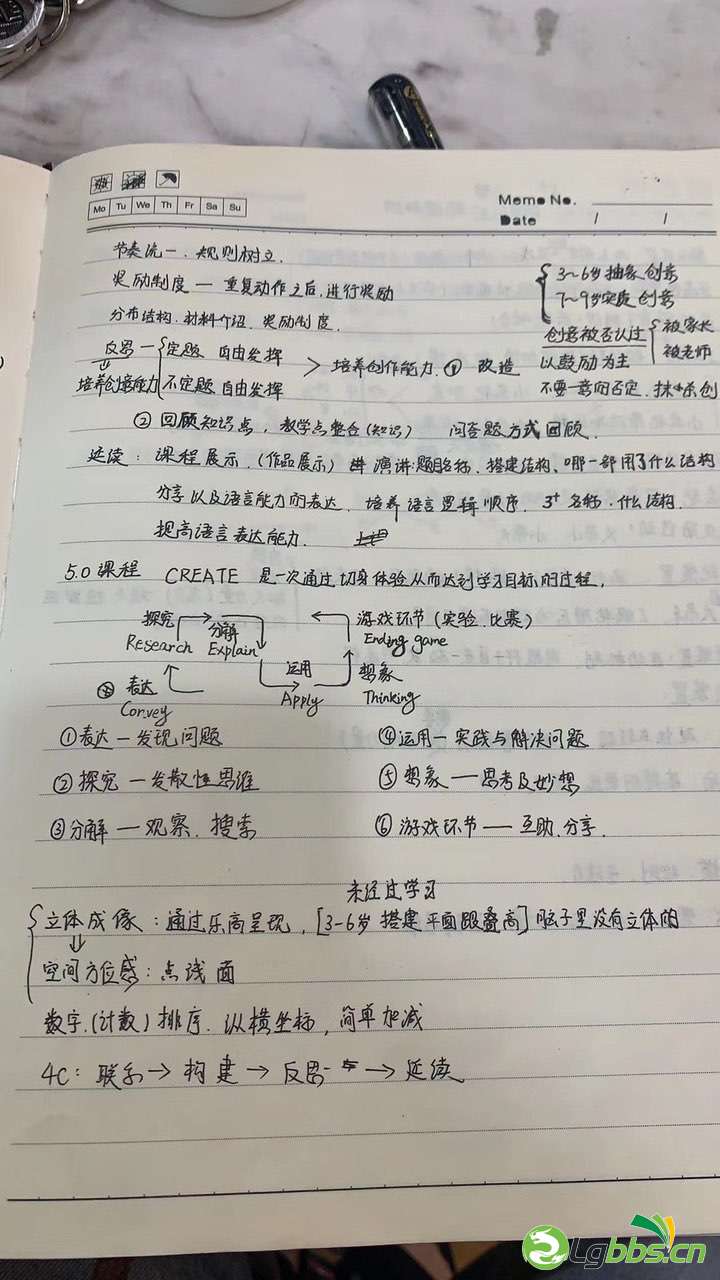 Mo Tu We Th Fr Sa Su
Memo No.
Date / /
节奏统一、规则树立.
奖励制度 — 重复动作之后,进行奖励
分布结构.材料介绍.奖励制度.
3~6岁抽象创意
7~9岁实质创意
创意被否认过 { 被家长
被老师
以鼓励为主
不要一意的否定.抹杀创
反思 — { 定题 自由发挥
不定题 自由发挥
> 培养创作能力. ① 改造
培养创造能力
② 回顾知识点, 教学点整合(知识) 问答题方式回顾.
延续: 课程展示.(作品展示) 演讲:题目名称.搭建结构、哪一部用了什么结构
分享以及语言能力的表达. 培养语言逻辑顺序. 3+ 名称.什么结构.
提高语言表达能力.
5.0课程 CREATE 是一次通过切身体验从而达到学习目标的过程.
探究
Research
分解
Explain
游戏环节(实验.比赛)
Ending game
表达
Convey
运用
Apply
想象
Thinking
①表达 — 发现问题
④运用 — 实践与解决问题
②探究 — 发散性思维
⑤想象 — 思考及妙想
③分解 — 观察.搜索
⑥游戏环节 — 互助.分享.
未经过学习
立体成像: 通过乐高呈现, [3-6岁 搭建平面跟叠高] 脑子里没有立体的
空间方位感: 点线面
数字.(计数) 排序. 纵横坐标, 简单加减
4C: 联系→ 构建→ 反思→ 延续
Lgbbs.cn